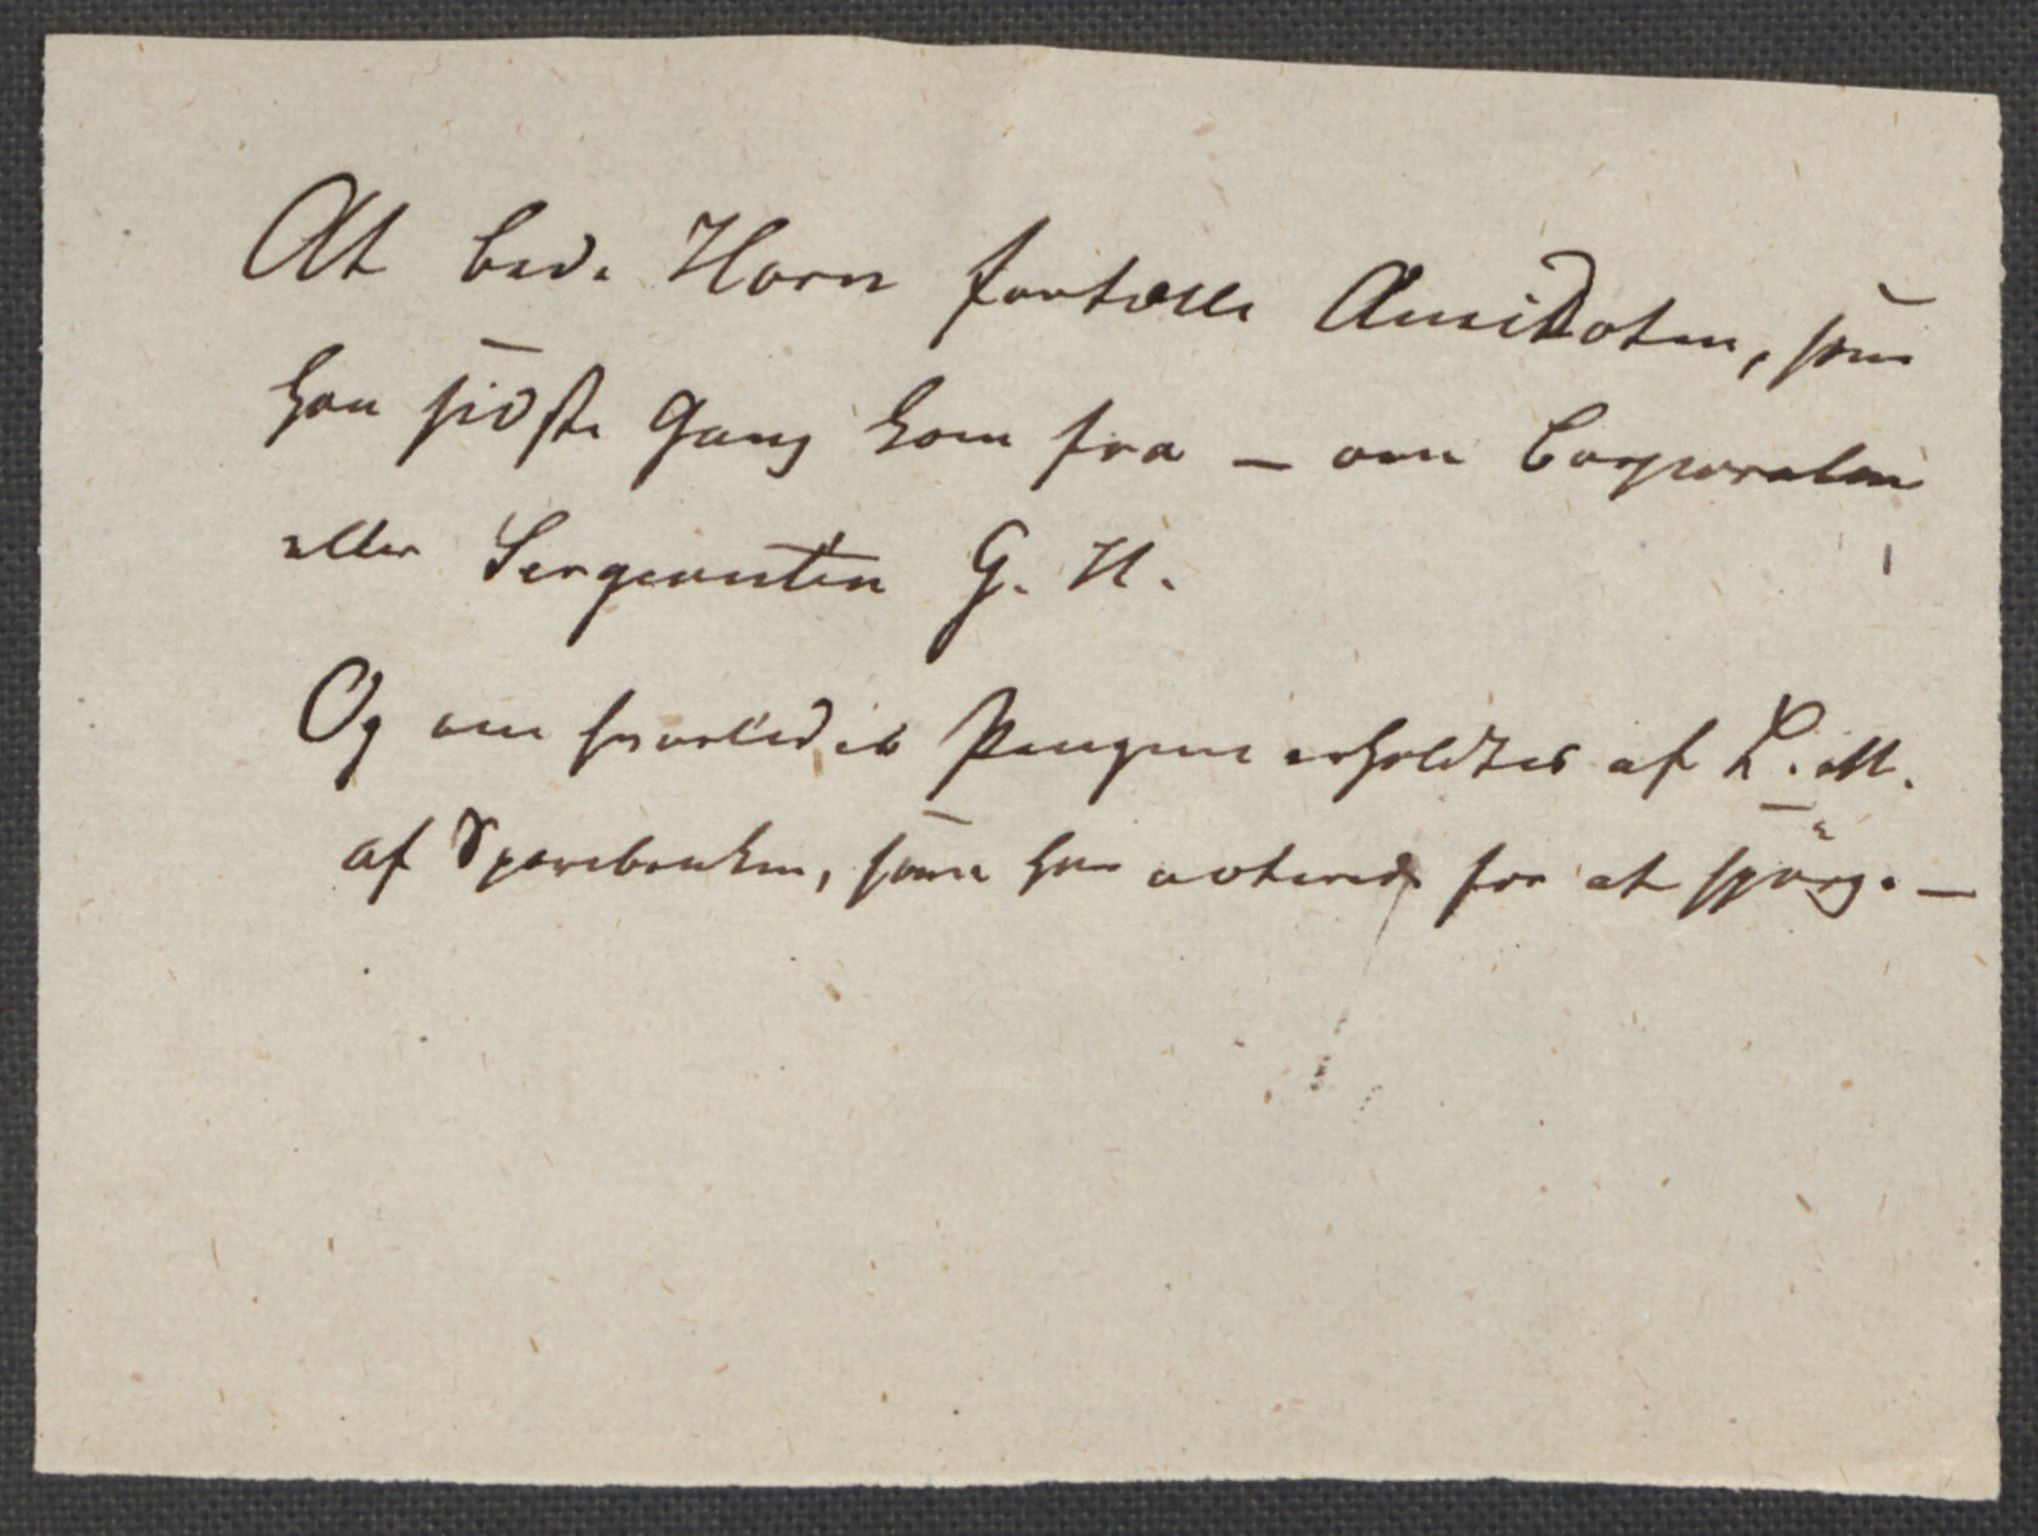 At bede Horn fortælle Anecdoten, som
han sidste Gang kom fra — om Corporalen
eller Sergeanten G. H.
Og om hvorledes Pengene erholdtes af L. M.
af Sparebanken, som han noterede for at spørge. —